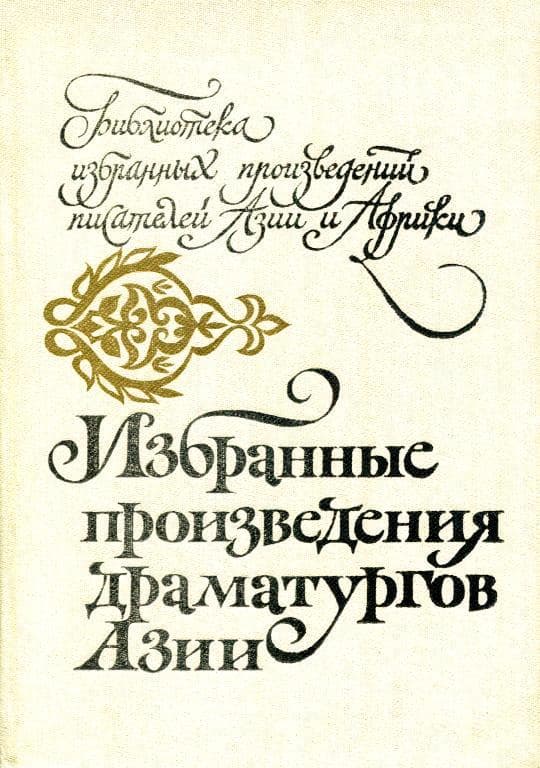 Библиотека
избранных произведений
писателей Азии и Африки
Избранные
произведения
драматургов
Азии